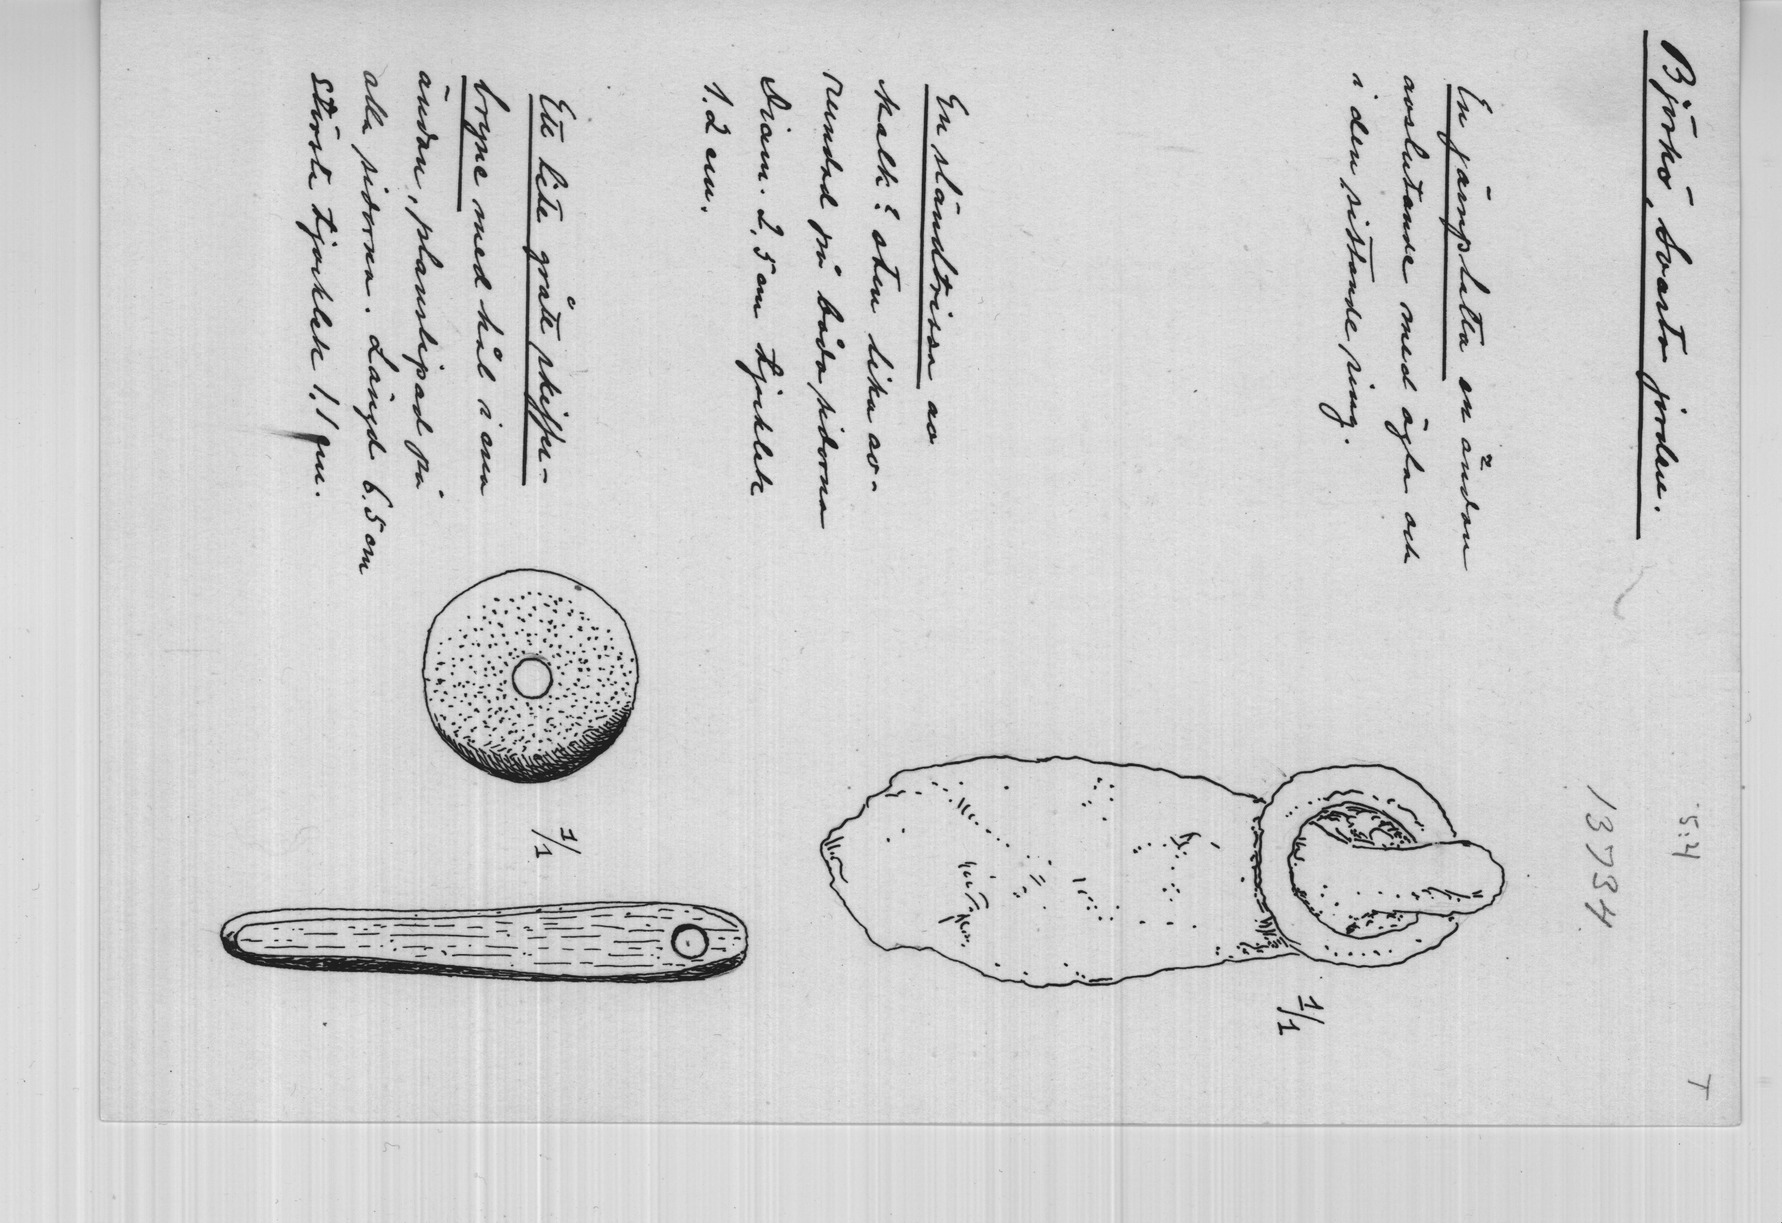 Björkö, Svarta jorden.
5:4
13734
T
En järnplatta ena ändan
avslutande med ögla och
i den sittande ring.
1/1
En sländtrissa av
kalk? sten lika av-
rundad på båda sidorna
Diam. 2,5 cm tjocklek
1.2 cm.
1/1
Ett litet grått skiffer-
bryne med hål i ena
ändan, planslipad på
alla sidorna. Längd 6.5 cm
största tjocklek 1.1 cm.